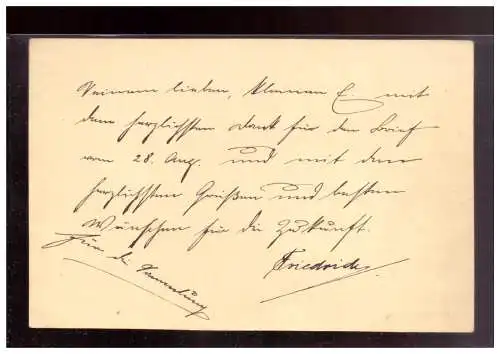 Meinem lieben, kleinen E. mit
dem herzlichsten Dank für den Brief
vom 28. Aug. und mit den
herzlichsten Grüßen und besten
Wünschen für die Zukunft.
Friedrich
Für die Sammlung